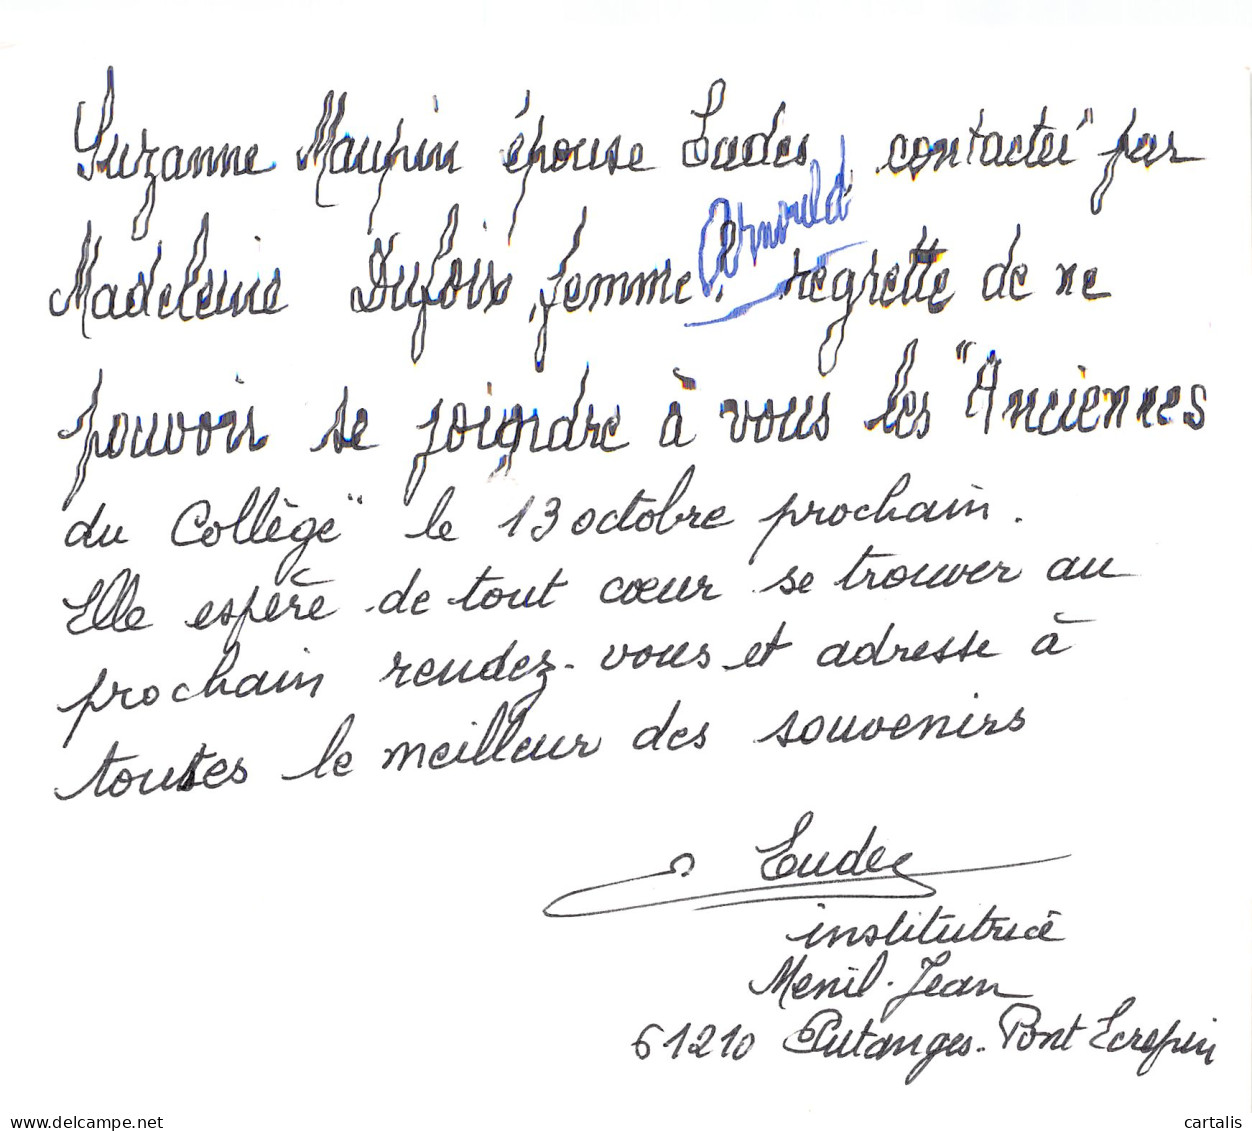 Suzanne Maupin épouse Eudes, contactée" par
Madeleine Dufoix, femme ? Arnould regrette de ne
pouvoir se joindre à vous les "Anciennes
du Collège" le 13 octobre prochain.
Elle espère de tout cœur se trouver au
prochain rendez-vous et adresse à
toutes le meilleur des souvenirs
Eudes
institutrice
Menil-Jean
61210 Putanges-Pont Ecrepin
delcampe.net
cartalis